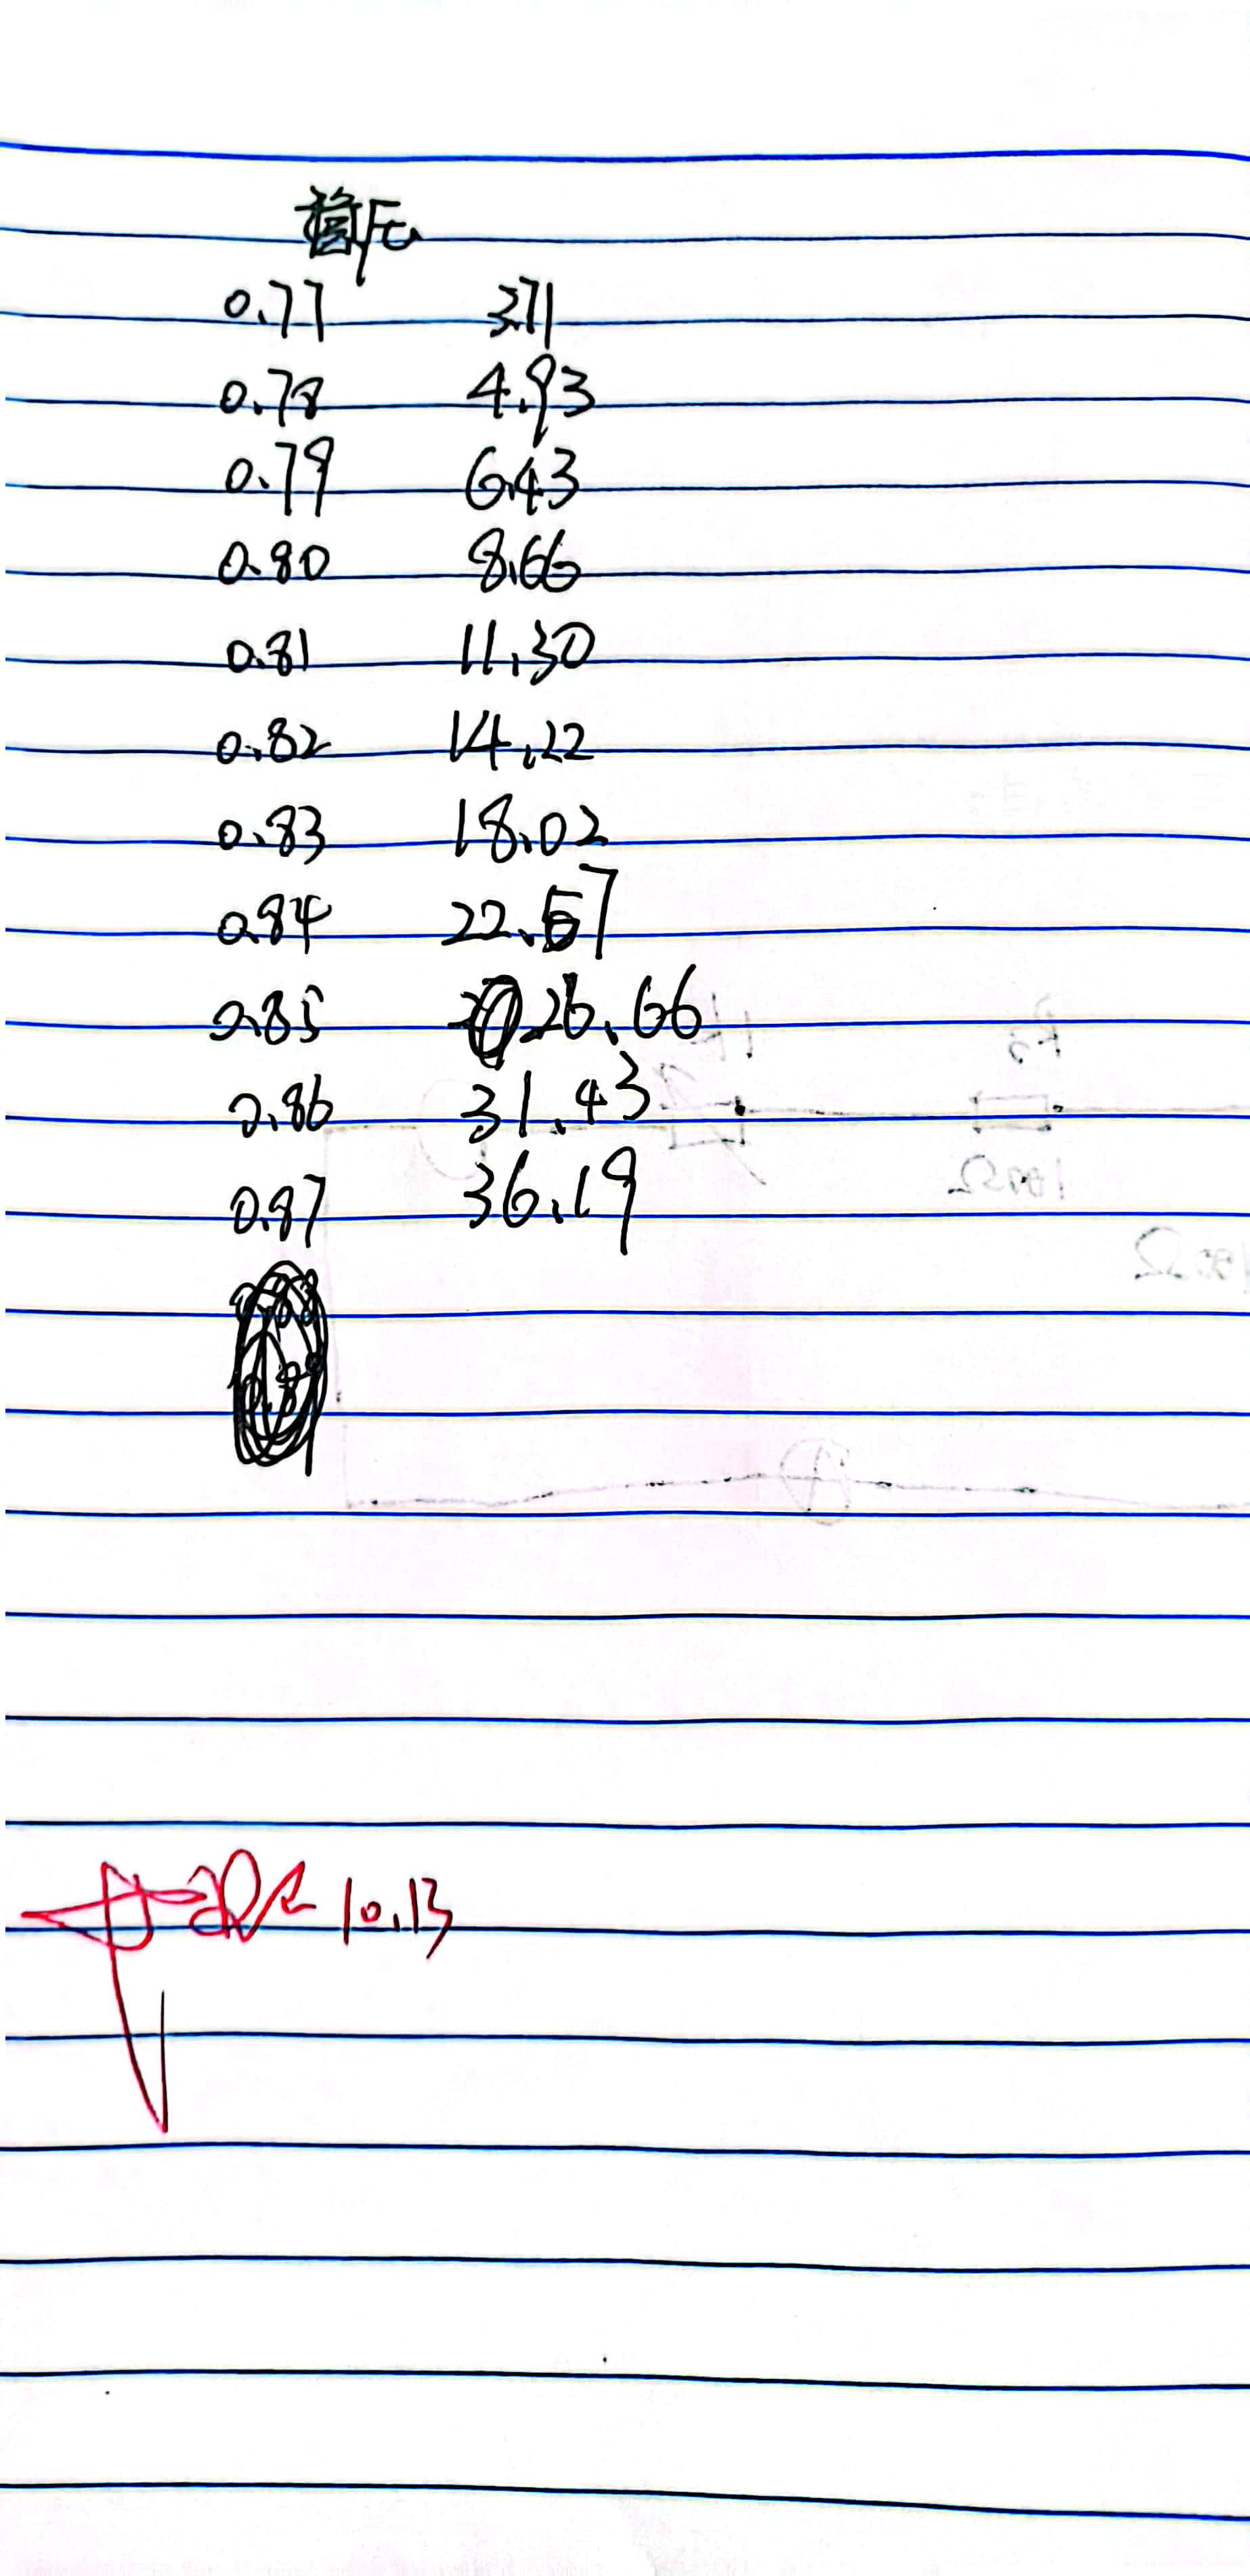 0.77 3.71
0.78 4.93
0.79 6.43
0.80 8.66
0.81 11.30
0.82 14.22
0.83 18.02
0.84 22.67
0.85 26.66
0.86 31.43
0.87 36.19
10.13